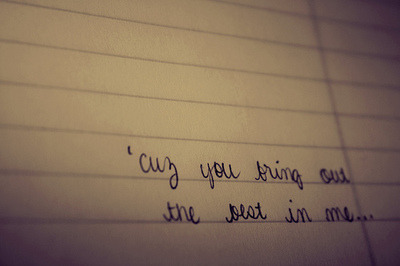 'cuz you bring out
the best in me...